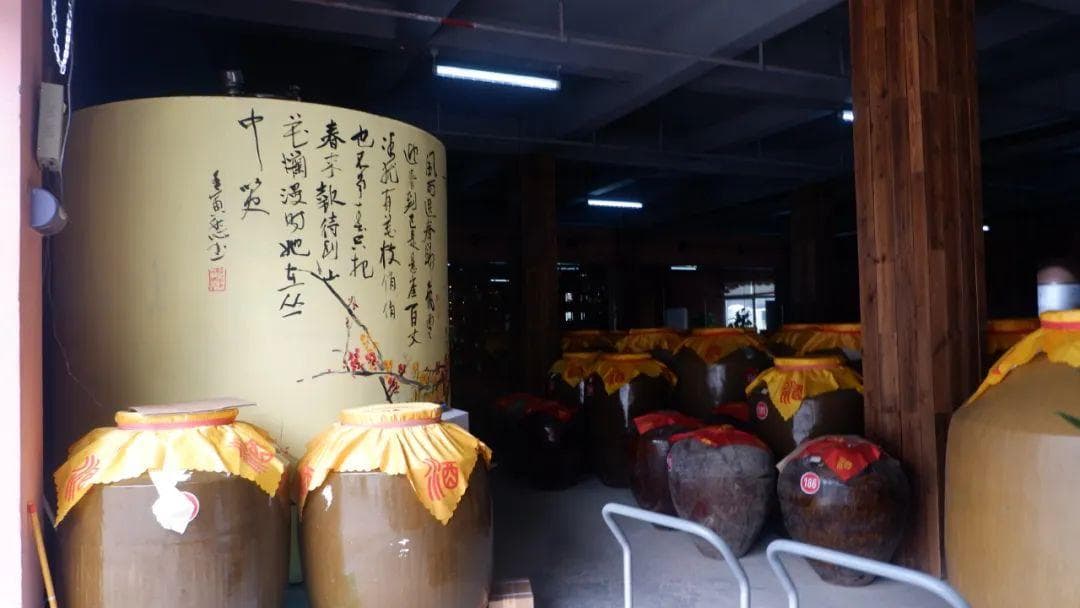 風雨送春歸飛雪
迎春到已是悬崖百丈
冰犹有花枝俏俏
也不争春只把
春来報待到山
花爛漫时她在丛
中笑
壬寅
酒
酒
酒
186